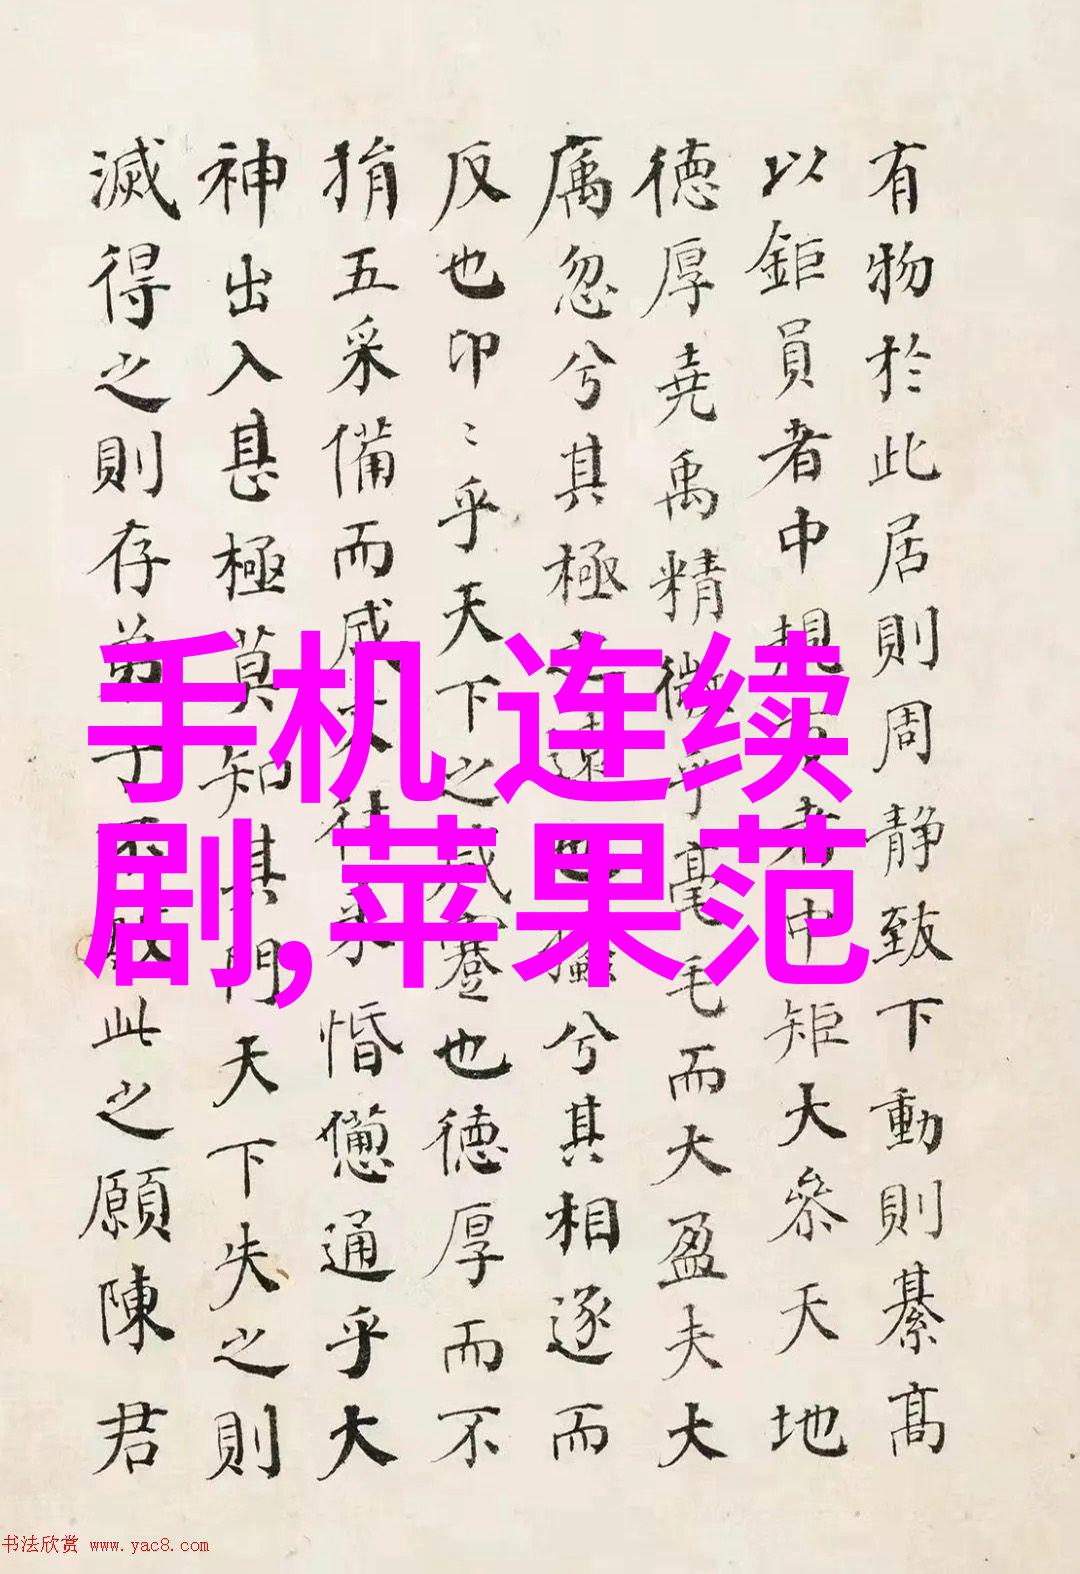 有物於此居則周静致下動則綦高
以鉅員者中規者中矩大參天地
德厚堯禹精微乎毫毛而大盈夫大
厲忽兮其極之遠也兮其相逐而
反也印〻乎天下之咸蹇也德厚而不
捐五采備而成文往来惛憊通乎大
神出入甚極莫知其門天下失之則
滅得之則存弟子不敏此之願陳君
手机 连续
剧,苹果范
书法欣赏 www.yac8.com